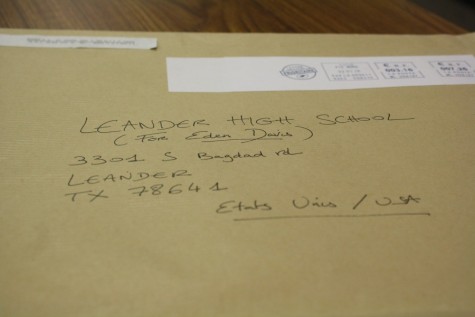 LEANDER HIGH SCHOOL
(For Eden Davis)
3301 S Bagdad rd
LEANDER
TX 78641
Etats Unis / USA